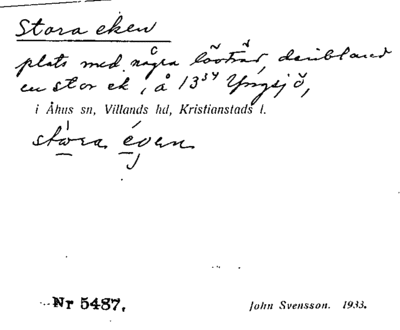 Stora eken
plats med några lövträd, däribland
en stor ek, å 13³⁴ Yngsjö,
i Åhus sn, Villands hd, Kristianstads l.
stora
Nr 5487.
John Svensson. 1933.